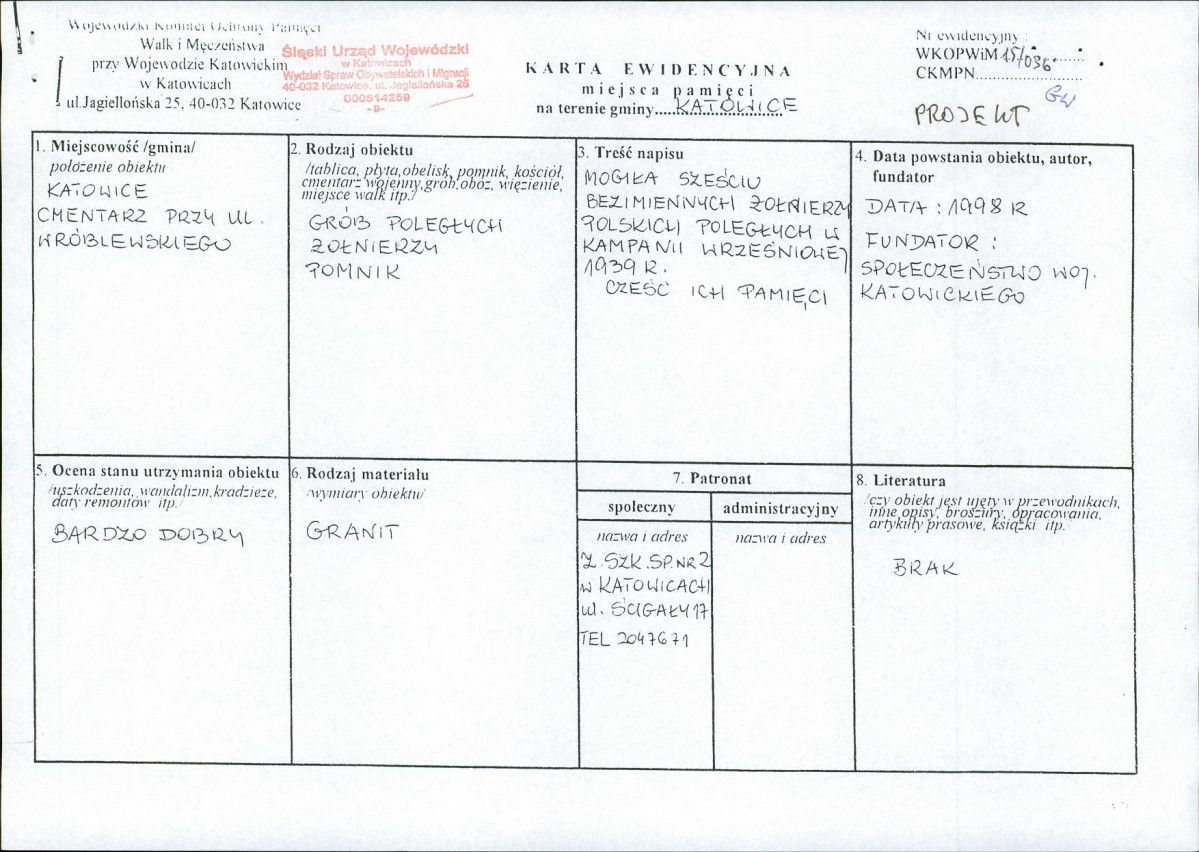 Wojewódzki Komitet Ochrony Pamięci
Walk i Męczeństwa
przy Wojewodzie Katowickim
w Katowicach
ul.Jagiellońska 25, 40-032 Katowice
Śląski Urząd Wojewódzki
w Katowicach
Wydział Spraw Obywatelskich i Migracji
40-032 Katowice, ul. Jagiellońska 25
000514259
-9-
KARTA EWIDENCYJNA
miejsca pamięci
na terenie gminy....KATOWICE
Nr ewidencyjny :
WKOPWiM 15/036
CKMPN
PROJEKT
1. Miejscowość /gmina/
położenie obiektu
KATOWICE
CMENTARZ PRZY UL.
WRÓBLEWSKIEGO
2. Rodzaj obiektu
/tablica, płyta,obelisk, pomnik, kościół,
cmentarz wojenny,grób,obóz, więzienie,
miejsce walk itp./
GRÓB POLEGŁYCH
ŻOŁNIERZY
POMNIK
3. Treść napisu
MOGIŁA SZEŚCIU
BEZIMIENNYCH ŻOŁNIERZY
POLSKICH POLEGŁYCH W
KAMPANII WRZEŚNIOWEJ
1939 R.
CZEŚĆ ICH PAMIĘCI
4. Data powstania obiektu, autor,
fundator
DATA : 1998 R
FUNDATOR :
SPOŁECZEŃSTWO WOJ.
KATOWICKIEGO
5. Ocena stanu utrzymania obiektu
/uszkodzenia, wandalizm,kradzieże,
daty remontów itp./
BARDZO DOBRY
6. Rodzaj materiału
/wymiary obiektu/
GRANIT
7. Patronat
społeczny
nazwa i adres
Z.SZK.SP.NR 2
W KATOWICACH
ul. ŚCIGAŁY 17
TEL 2047671
administracyjny
nazwa i adres
8. Literatura
/czy obiekt jest ujęty w przewodnikach,
inne opisy, broszury, opracowania,
artykuły prasowe, książki itp./
BRAK